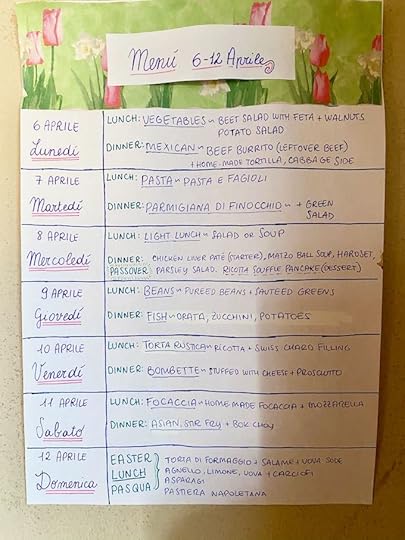 Menú 6-12 Aprile
6 APRILE
Lunedí
LUNCH: VEGETABLES ~ BEET SALAD WITH FETA + WALNUTS
POTATO SALAD
DINNER: MEXICAN ~ BEEF BURRITO (LEFTOVER BEEF)
+ HOME-MADE TORTILLA, CABBAGE SIDE
7 APRILE
Martedí
LUNCH: PASTA ~ PASTA E FAGIOLI
DINNER: PARMIGIANA DI FINOCCHIO ~ + GREEN
SALAD
8 APRILE
Mercoledí
LUNCH: LIGHT LUNCH ~ SALAD OR SOUP
DINNER: CHICKEN LIVER PATÉ (STARTER), MATZO BALL SOUP, HAROSET,
PASSOVER PARSLEY SALAD. RICOTTA SOUFFLE PANCAKE (DESSERT)
9 APRILE
Giovedí
LUNCH: BEANS ~ PUREED BEANS + SAUTEED GREENS
DINNER: FISH ~ ORATA, ZUCCHINI, POTATOES
10 APRILE
Venerdí
LUNCH: TORTA RUSTICA ~ RICOTTA + SWISS CHARD FILLING
DINNER: BOMBETTE ~ STUFFED WITH CHEESE + PROSCIUTTO
11 APRILE
Sabato
LUNCH: FOCACCIA ~ HOME MADE FOCACCIA + MOZZARELLA
DINNER: ASIAN, STIR FRY + BOK CHOY
12 APRILE
Domenica
EASTER
LUNCH
PASQUA
TORTA DI FORMAGGIO + SALAME + UOVA SODE
AGNELLO, LIMONE, UOVA + CARCIOFI
ASPARAGI
PASTIERA NAPOLETANA